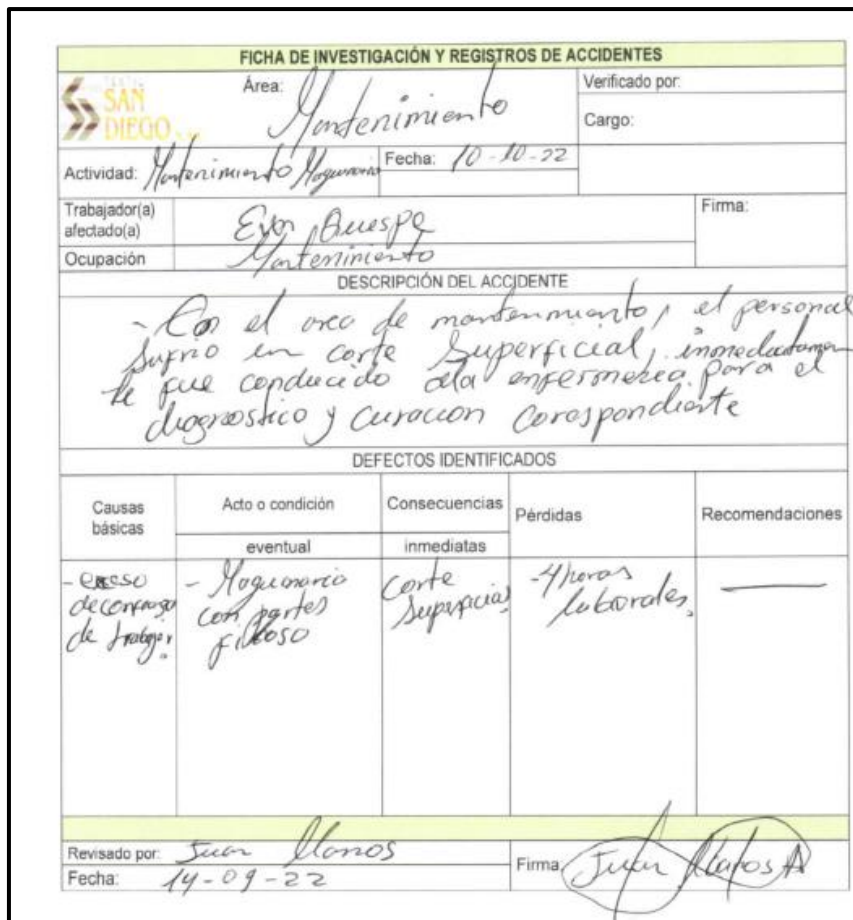 FICHA DE INVESTIGACIÓN Y REGISTROS DE ACCIDENTES
SAN DIEGO
Área: Mantenimiento
Verificado por:
Cargo:
Actividad: Mantenimiento Maquinaria
Fecha: 10-10-22
Trabajador(a) afectado(a)
Quispe
Firma:
Ocupación Mantenimiento
DESCRIPCIÓN DEL ACCIDENTE
- En el area de mantenimiento, el personal
sufrio un corte superficial, inmediatamen
te fue conducido ala enfermeria para el
diagnostico y curacion corespondiente
DEFECTOS IDENTIFICADOS
Causas básicas
Acto o condición eventual
Consecuencias inmediatas
Pérdidas
Recomendaciones
- exeso
de confianza
de trabajar.
- Maquinaria
con partes
filoso
Corte
Superficial.
-4 horas
laborales.
Revisado por: Juan Llanos
Fecha: 14-09-22
Firma: Juan Llanos A